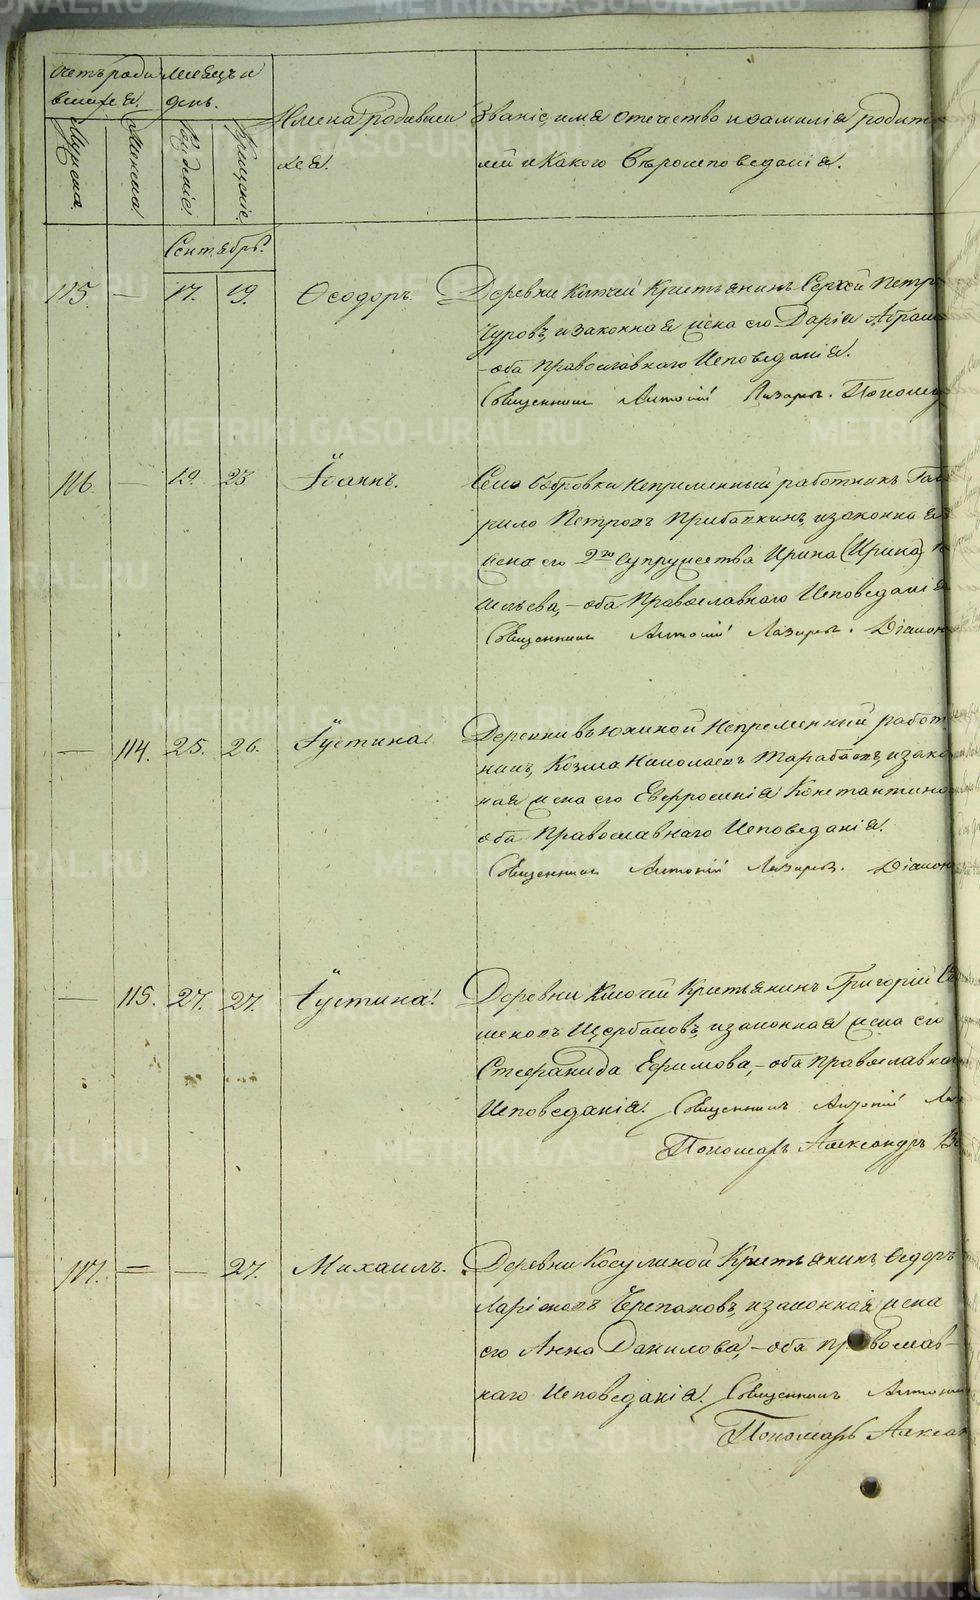 Счетъ роди
вшихся.
Мѣсяцъ и
день.
Мужеска.
Женска.
Рожденіе.
Крещеніе.
Имена родивши
хся.
Званіе, имя отечество и фамилія родит
лей и какого вѣроисповеданія.
Сентябрь.
115. — 17. 19. Ѳеодоръ.
Деревни Ключей Крестьянинъ Сергѣй Петр
Чуровъ, и законная жена его Дарія Абрам
— оба Православнаго Исповеданія.
Священникъ Антоній Лазаревъ. Пономар
116. — 19. 23. Іоаннъ.
Села Бобровки Непременный работникъ Гав
рило Петровъ Прибавкинъ, и законная
жена его 2го супружества Ирина (Ирина)
сильева, — оба Православнаго Исповеданія
Священникъ Антоній Лазаревъ. Діакон
— 114. 25. 26. Іустина.
Деревни Вьюхиной Непременный работ
никъ, Козма Николаевъ Тарабаевъ, и закон
ная жена его Евфросинія Константино
оба Православнаго Исповеданія.
Священникъ Антоній Лазаревъ. Діакон
— 115. 27. 27. Іустина.
Деревни Ключей Крестьянинъ Григорій Се
меновъ Щербаковъ, и законная жена его
Стефанида Ефимова, — оба Православна
Исповеданія. Священникъ Антоній Лаз
Пономарь Александръ
117. — — 27. Михаилъ.
Деревни Косулиной Крестьянинъ Ѳедоръ
Ларіоновъ Черепановъ, и законная жена
его Анна Данилова, — оба Православ-
наго Исповеданія. Священникъ Антоній
Пономарь Алексан
METRIKI.GASO-URAL.RU